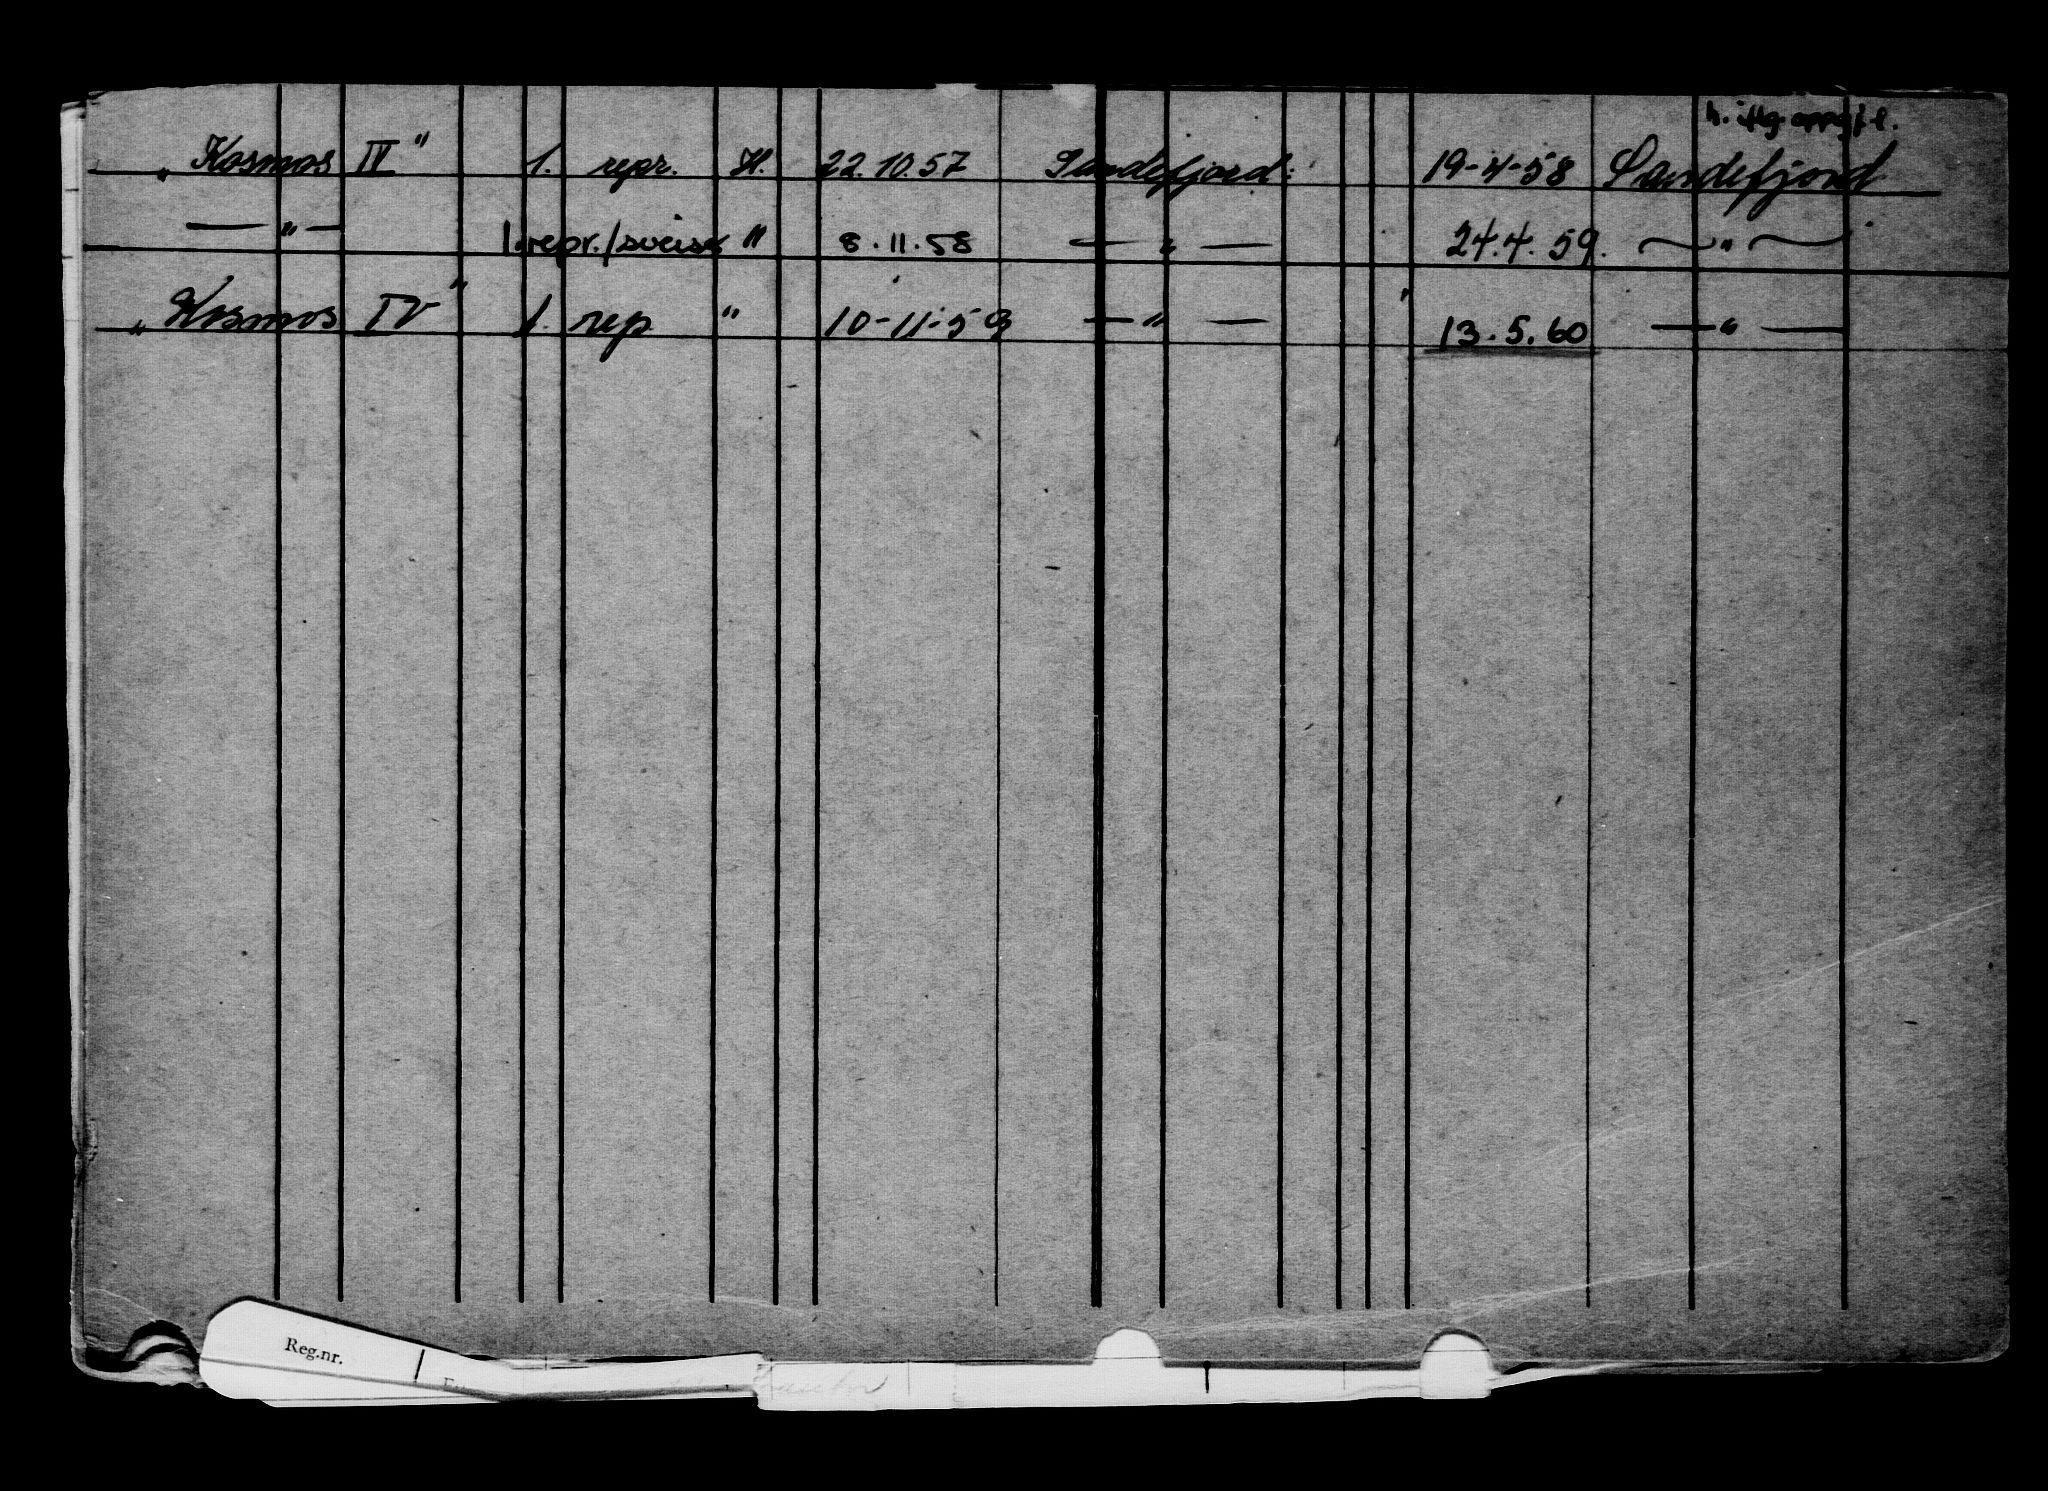 „Kosmos IV" 1. repr. H. 22.10.57 Sandefjord. 19-4-58 Sandefjord
— " — 1. repr./sveiser " 8.11.58 — " — 24.4.59. — " —
„Kosmos IV" 1. rep " 10-11-59 — " — 13.5.60 — " —
Reg.nr.